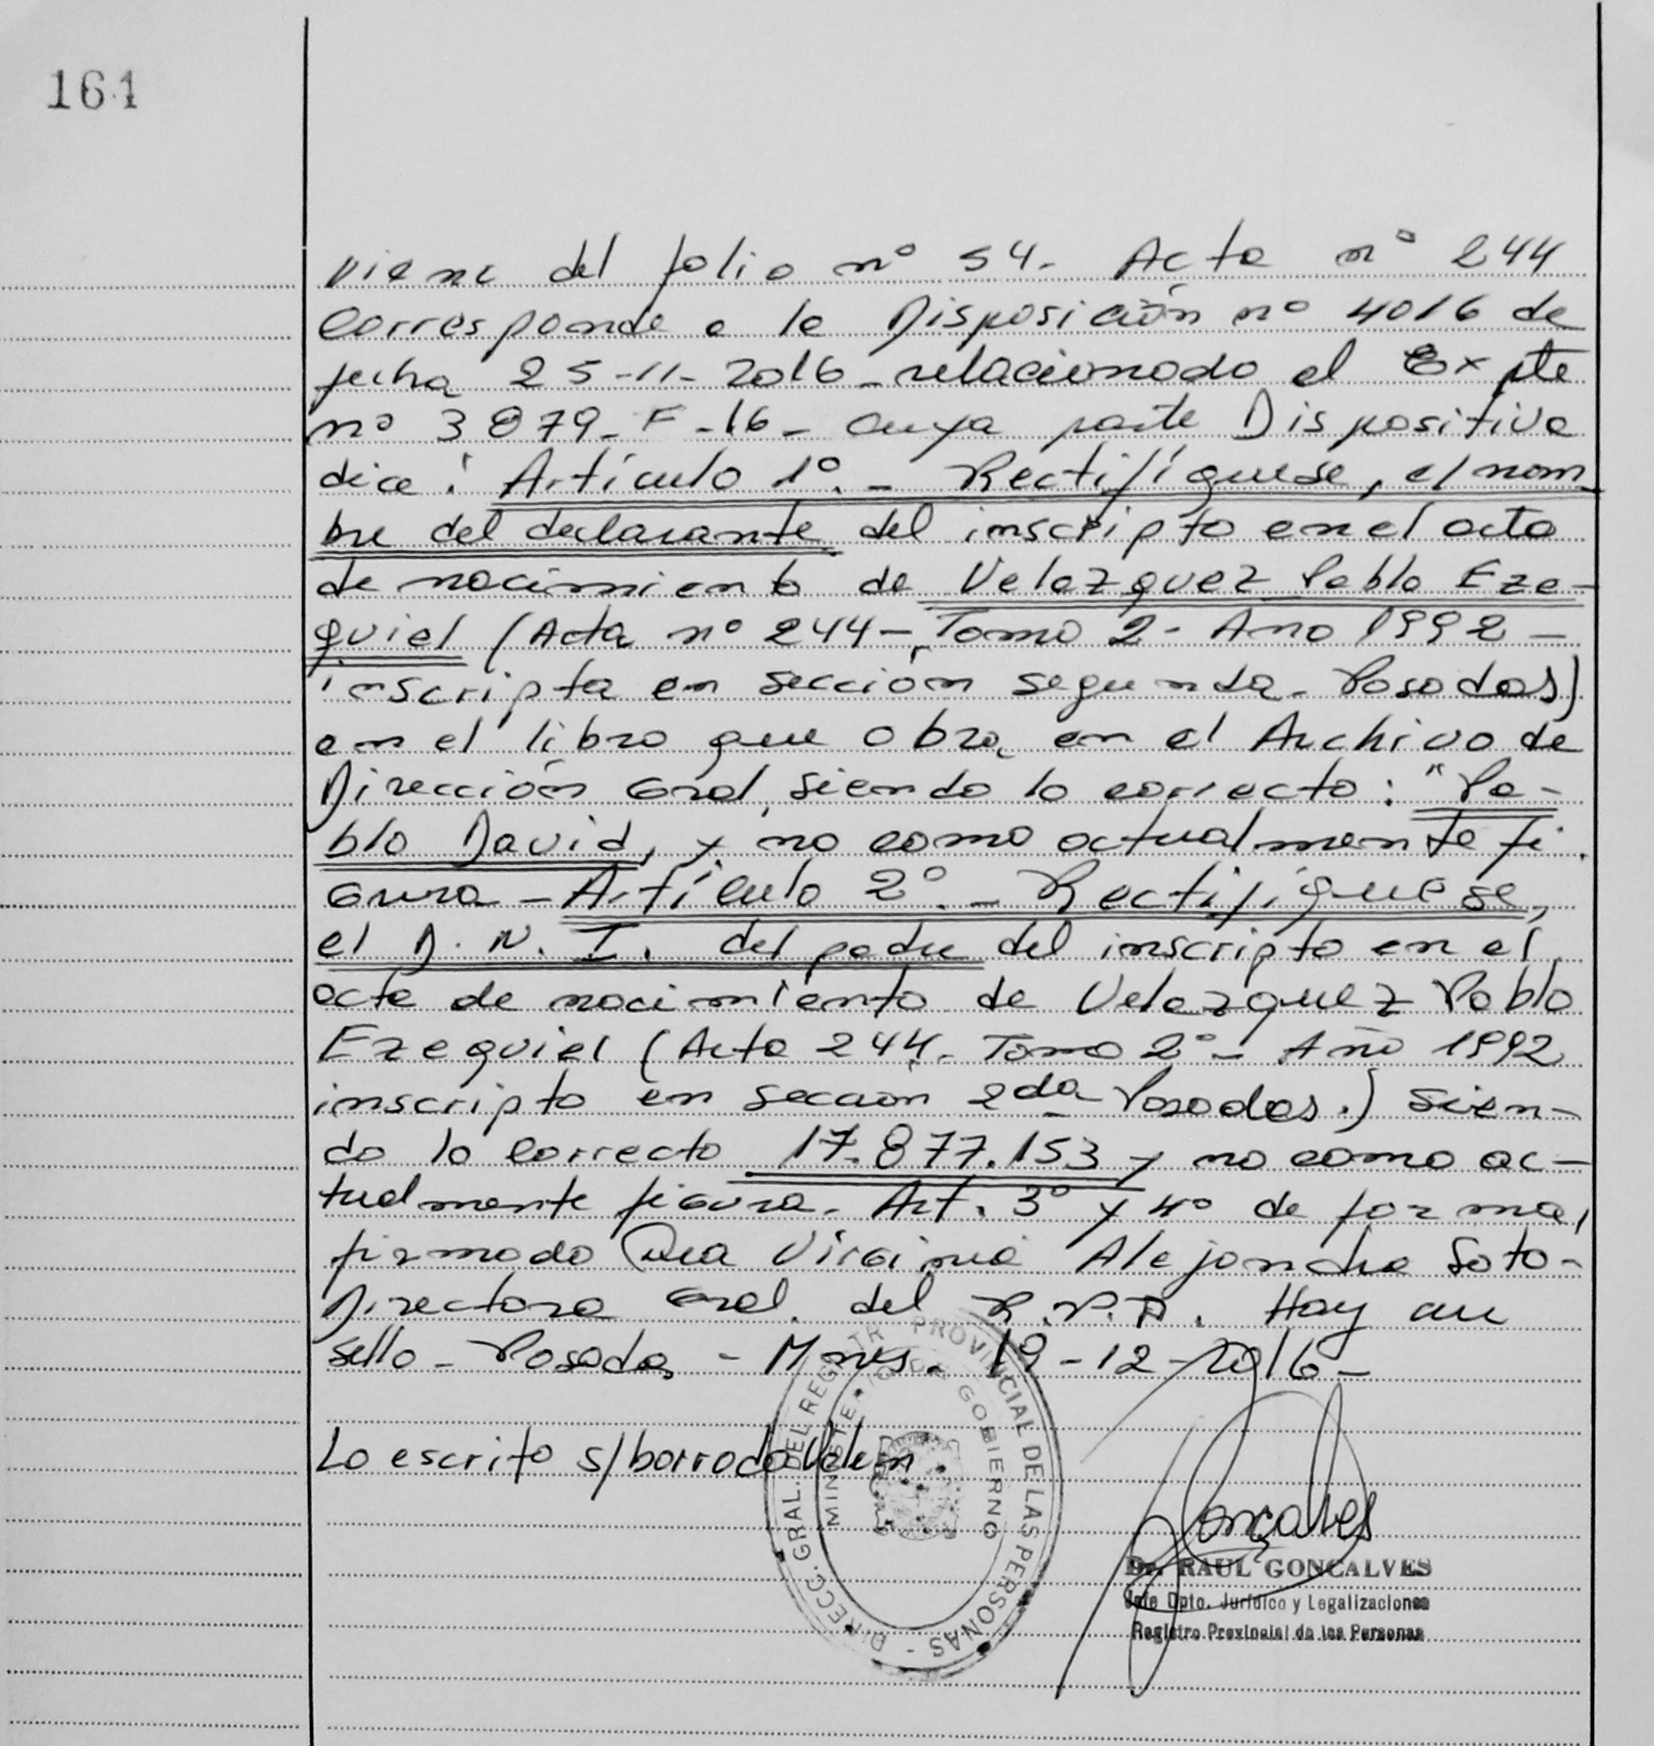 161
viene del folio nº 54. Acta nº 244
Corresponde a la Disposición nº 4016 de
fecha 25-11-2016 - relacionado el Expte
nº 3879-F-16- cuya parte Dispositiva
dice: Artículo 1º.- Rectifíquese, el nom-
bre del declarante del inscripto en el acta
de nacimiento de Velazquez Pablo Eze-
quiel (Acta nº 244- Tomo 2- Año 1992-
inscripta en sección segunda. Posadas)
en el libro que obra en el Archivo de
Dirección Gral, siendo lo correcto: "Pa-
blo David, y no como actualmente fi-
gura - Artículo 2º.- Rectifíquese,
el D.N.I. del padre del inscripto en el
acta de nacimiento de Velazquez Pablo
Ezequiel (Acta 244. Tomo 2º- Año 1992
inscripto en sección 2da Posadas.) sien-
do lo correcto 17.877.153 y no como ac-
tualmente figura. Art. 3º y 4º de forma,
firmado Dra Virginia Alejandra Soto-
Directora Gral. del R.P.P. Hay un
sello - Posadas - Mnes. 19-12-2016-
Lo escrito s/borrado Valen
DIRECC. GRAL. DEL REGISTR PROVINCIAL DE LAS PERSONAS -
MINISTERIO DE GOBIERNO
Goncalves
Dr. RAUL GONCALVES
Jefe Dpto. Jurídico y Legalizaciones
Registro Provincial de las Personas